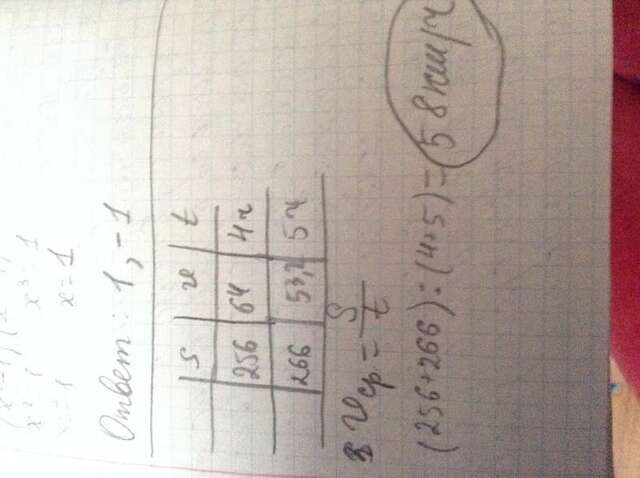 x = 1
Ответ: 1, -1
S v t
256 64 4ч
266 53,2 5ч
vср = S/t
(256+266):(4+5)=58км/ч